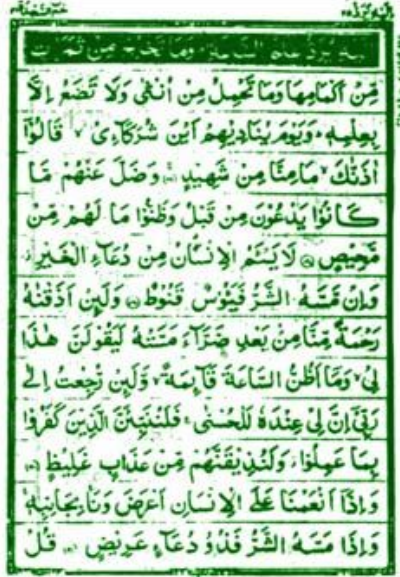 اِلَيْهِ يُرَدُّ ٢٥
حٰمٓ السجدة ٤١
اِلَيْهِ يُرَدُّ عِلْمُ السَّاعَةِ ؕ وَمَا تَخْرُجُ مِنْ ثَمَرٰتٍ
مِّنْ اَكْمَامِهَا وَمَا تَحْمِلُ مِنْ اُنْثٰى وَلَا تَضَعُ اِلَّا
بِعِلْمِهٖ ؕ وَيَوْمَ يُنَادِيْهِمْ اَيْنَ شُرَكَآءِىْ ۙ قَالُوْٓا
اٰذَنّٰكَ ۙ مَا مِنَّا مِنْ شَهِيْدٍ ۚ وَضَلَّ عَنْهُمْ مَّا
كَانُوْا يَدْعُوْنَ مِنْ قَبْلُ وَظَنُّوْا مَا لَهُمْ مِّنْ
مَّحِيْصٍ ۞ لَا يَسْئَمُ الْاِنْسَانُ مِنْ دُعَآءِ الْخَيْرِ ز
وَاِنْ مَّسَّهُ الشَّرُّ فَيَئُوْسٌ قَنُوْطٌ ۞ وَلَئِنْ اَذَقْنٰهُ
رَحْمَةً مِّنَّا مِنْۢ بَعْدِ ضَرَّآءَ مَسَّتْهُ لَيَقُوْلَنَّ هٰذَا
لِىْ ۙ وَمَاۤ اَظُنُّ السَّاعَةَ قَآئِمَةً ۙ وَّلَئِنْ رُّجِعْتُ اِلٰى
رَبِّىْۤ اِنَّ لِىْ عِنْدَهٗ لَلْحُسْنٰى ۚ فَلَنُنَبِّئَنَّ الَّذِيْنَ كَفَرُوْا
بِمَا عَمِلُوْا ز وَلَنُذِيْقَنَّهُمْ مِّنْ عَذَابٍ غَلِيْظٍ ۞
وَاِذَاۤ اَنْعَمْنَا عَلَى الْاِنْسَانِ اَعْرَضَ وَنَاٰ بِجَانِبِهٖ ۚ
وَاِذَا مَسَّهُ الشَّرُّ فَذُوْ دُعَآءٍ عَرِيْضٍ ۞ قُلْ